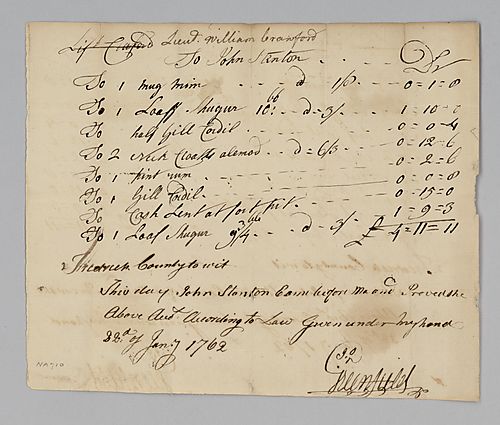 Lieut: William Crawford
To John Stanton Dr
To 1 mug mim d 1/8 0=1=8
To 1 Loaff Shugur 10 lb d=3/ 1=10=0
To half Gill Cordil 0=0=4
To 2 neck Cloaths alemod d=6/3 0=12=6
To 1 pint rum 0=2=6
To 1 Gill Cordil 0=0=8
To Cash Lent at fort pit 0=15=0
To 1 Loaf Shugur 9 3/4 d=3/ 1=9=3
£ 4=11=11
Fredrick County to wit
This day John Stanton Came before Me and Proved the
Above Acct. According to Law Given under my hand
22d of Janry 1762
NA710